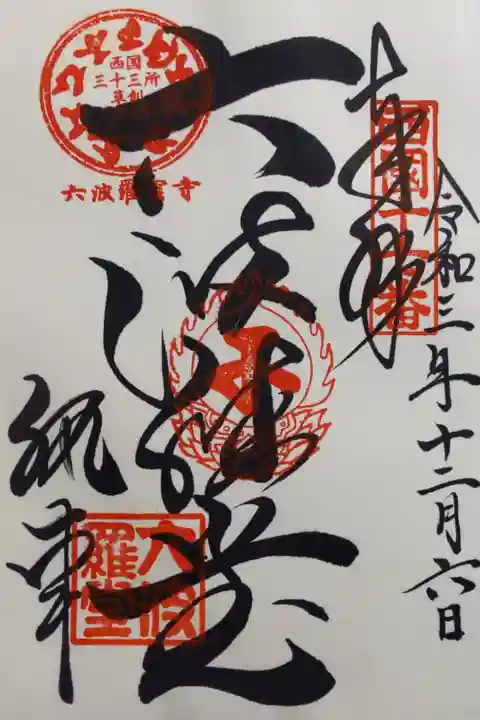 奉拝
西国十七番
令和三年十二月六日
六波羅堂
西国
三十三所
草創
六波羅蜜寺
六波
羅堂
執事